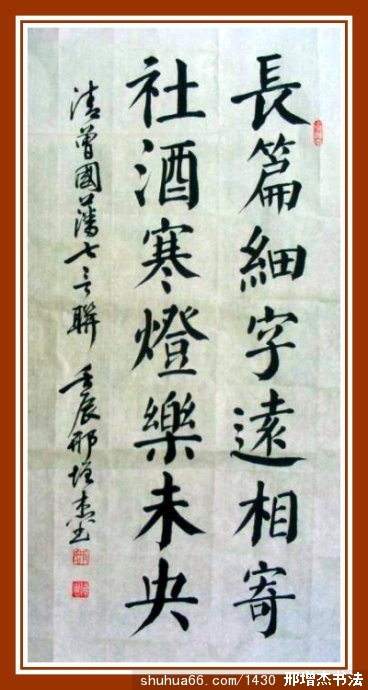 長篇細字遠相寄
社酒寒燈樂未央
清曾國藩七言聯 壬辰邢增杰書
shuhua66.com/1430 邢增杰书法